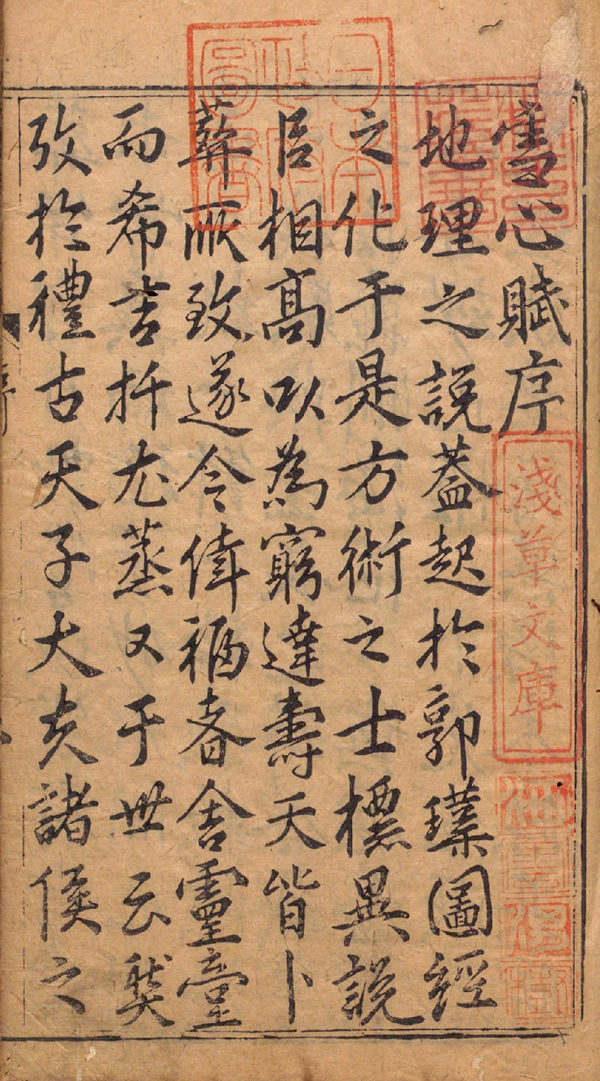 雪心賦序
地理之說蓋起於郭璞圖經
之化于是方術之士標異說
㠯相髙以為窮達壽夭皆卜
葬所致遂令倖福者舍靈臺
而希吉扦尤蒸又于世云
攷於禮古天子大夫諸侯之
淺草文庫
日本
政府
圖書